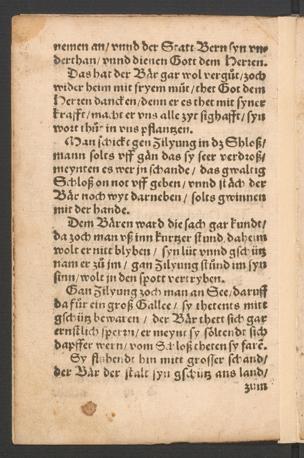 nemen an / vnnd der Statt Bern syn vn⸗
derthan / vnnd dienen Gott dem Herren.
Das hat der Bär gar wol vergüt / zoch
wider heim mit fryem müt / thet Got dem
Herren dancken / denn er es thet mit syner
krafft / macht er vns alle zyt sighafft / syn
wort thüt in vns pflantzen.
Man schickt gen Zilyung in dz Schloß /
mann solts vff gän das sy seer verdroß /
meynten es wer jn schande / das gwaltig
Schloß on not vff geben / vnnd der
Bär noch wyt darneben / solts gwinnen
mit der hande.
Dem Bären ward die sach gar kundt /
da zoch man vß inn kurtzer stund, daheim
wolt er nitt blyben / syn lüt vnnd gschütz
nam er zü jm / gan Zilyung stünd im syn
sinn / wolt in den spott vertryben.
Gan Zilyung zoch man an See / daruff
da für ein groß Gallee / sy thetents mitt
gschütz bewaren / der Bär thett sich gar
ernstlich sperrn / er meynt sy söltendt sich
dapffer wern / vom Schloß theten sy farē.
Sy fluhendt hin mitt grosser schand /
der Bär der stalt syn gschütz ans land /
zum